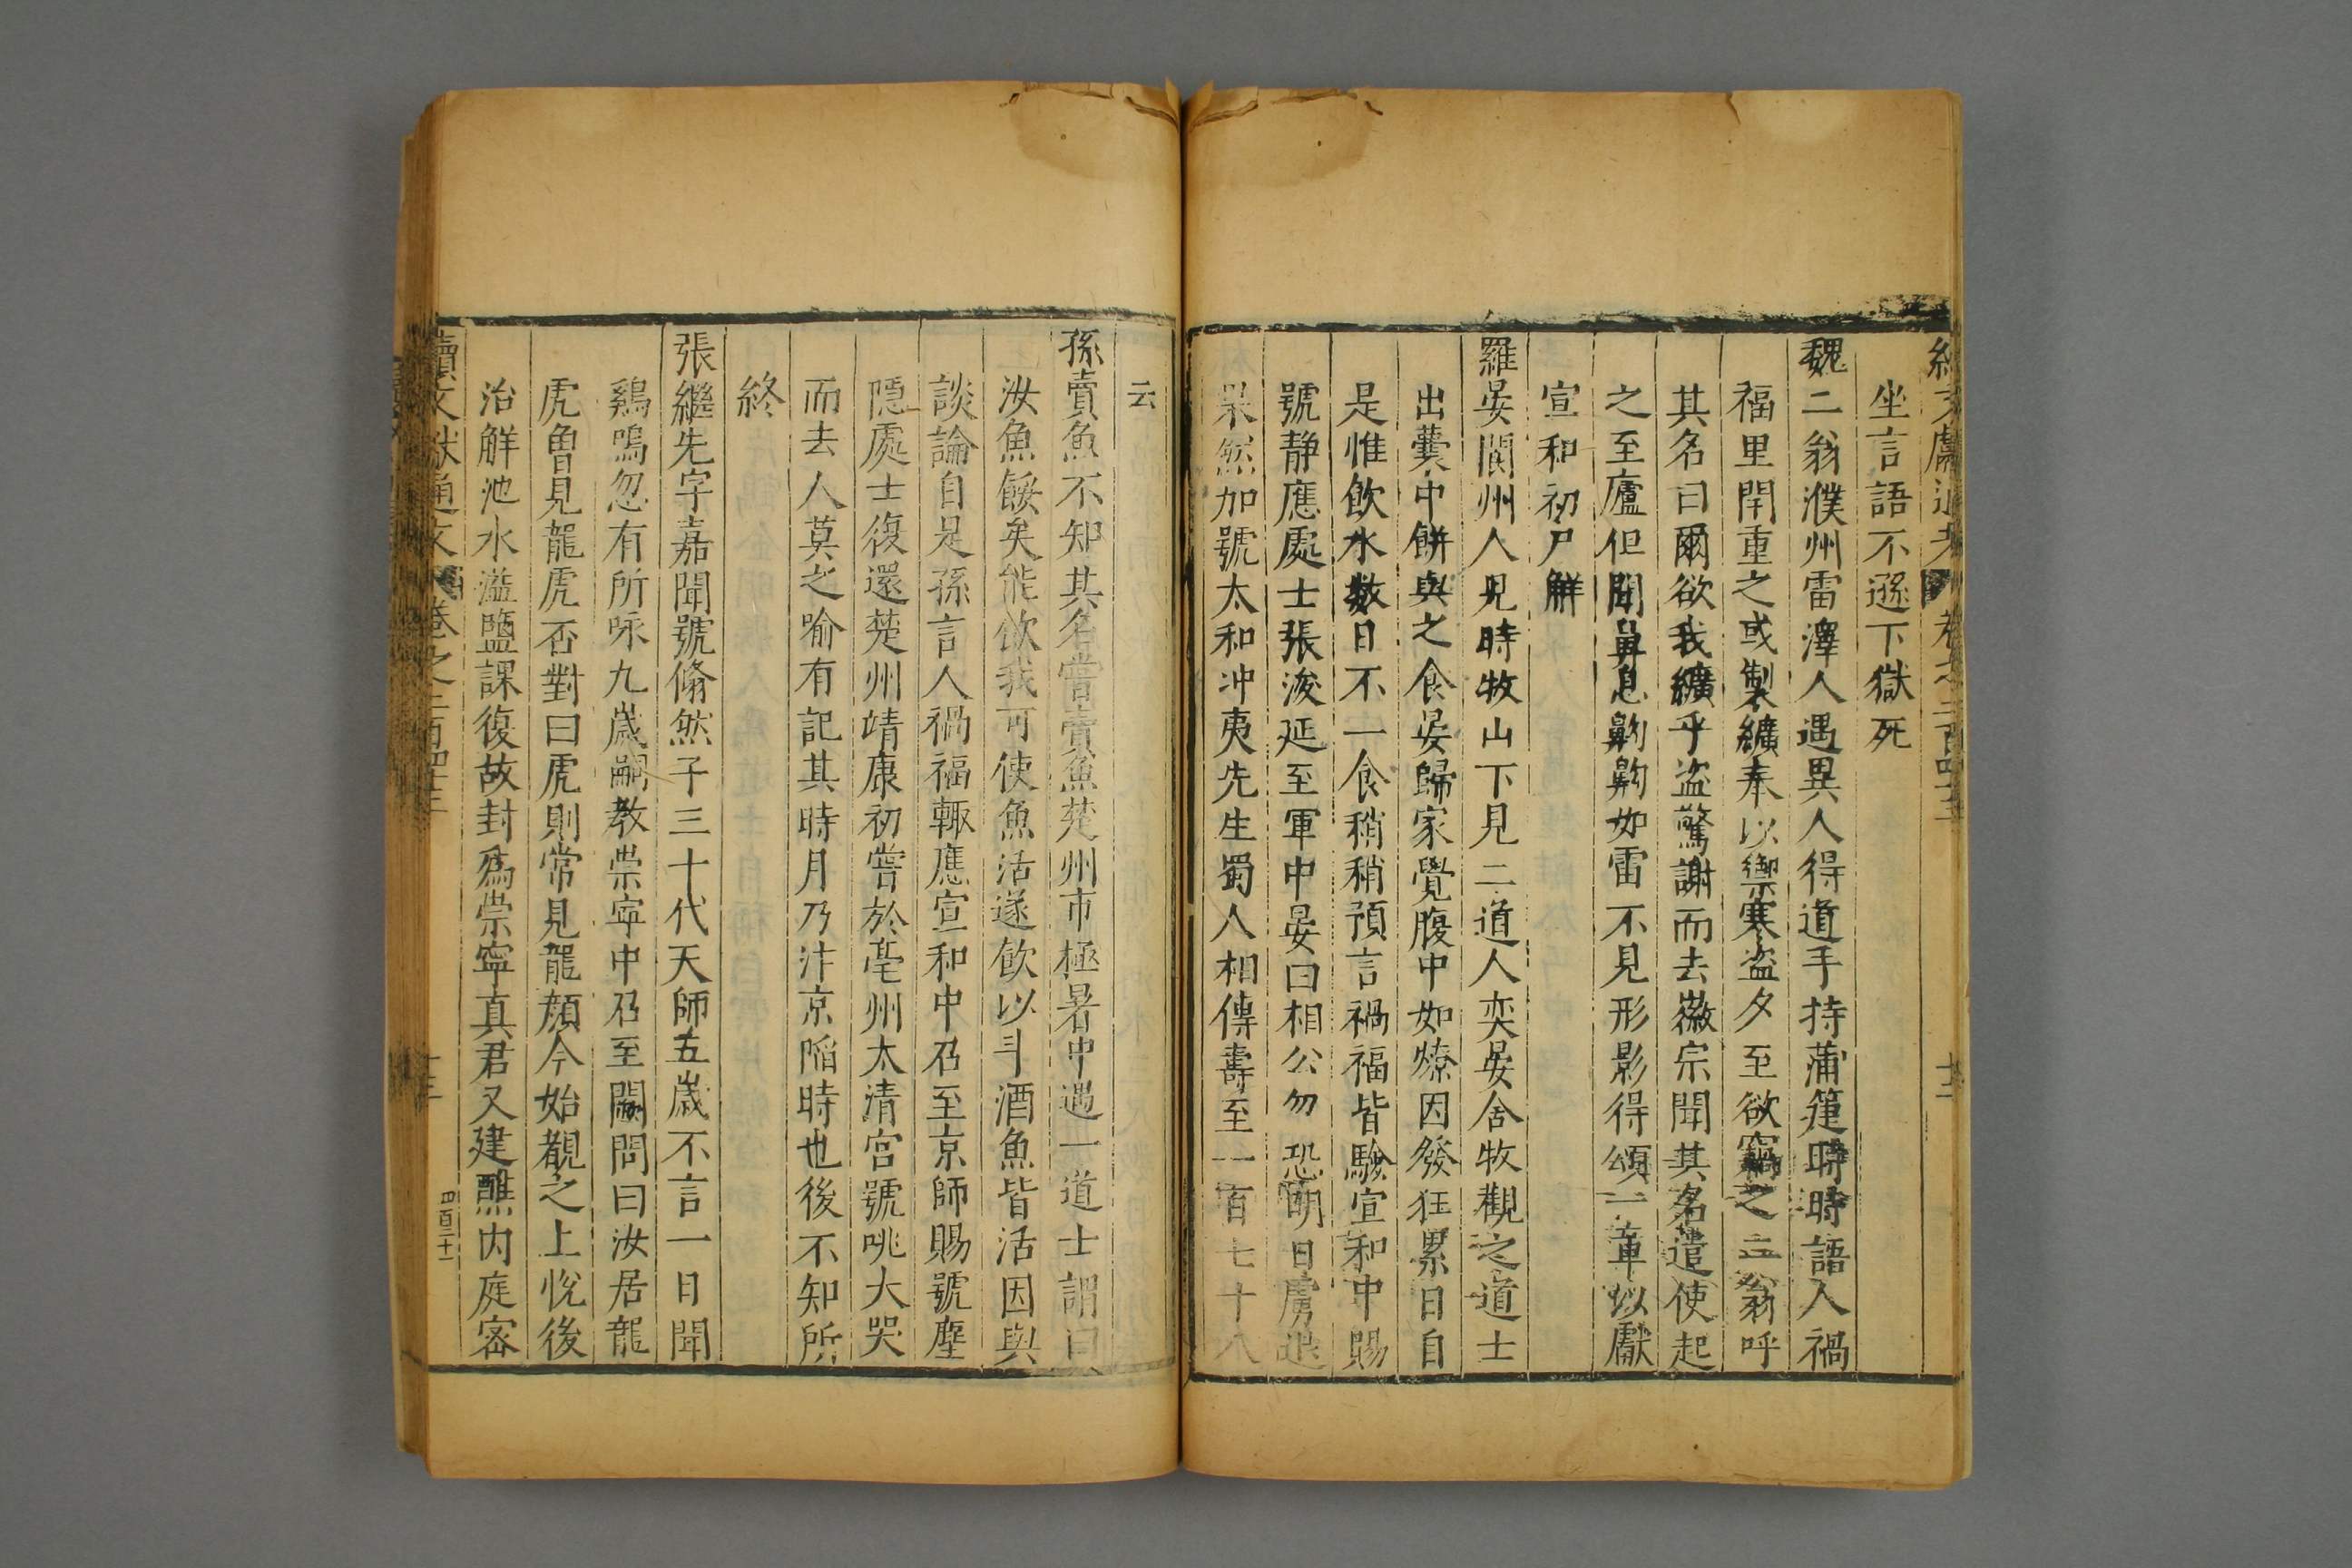 續文獻通考 卷之二百四十三 十二
坐言語不遜下獄死
魏二翁濮州雷澤人遇異人得道手持蒲箑時時語入禍
福里閈重之或製纊奉以禦寒盜夕至欲竊之二翁呼
其名曰爾欲我纊乎盜驚謝而去徽宗聞其名遣使起
之至廬但聞鼻息齁齁如雷不見形影得頌一章以獻
宣和初尸解
羅晏閬州人見時牧山下見二道人奕晏舍牧觀之道士
出囊中餅與之食晏歸家覺腹中如燎因發狂累日自
是惟飲水数日不一食稍稍預言禍福皆驗宣和中賜
號静應處士張浚延至軍中晏曰相公勿恐明日虜退
果然加號太和冲夷先生蜀人相傳壽至一百七十八
云
孫賣魚不知其名嘗賣魚楚州市極暑中遇一道士謂曰
汝魚餒矣能飲我可使魚活遂飲以斗酒魚皆活因與
談論自是孫言人禍福輒應宣和中召至京師賜號塵
隱處士復還楚州靖康初嘗於亳州太清宫號咷大哭
而去人莫之喻有記其時月乃汴京陷時也後不知所
終
張繼先字嘉聞號翛然子三十代天師五歲不言一日聞
鷄鳴忽有所咏九歲嗣教崇寧中召至闕問曰汝居龍
虎曽見龍虎否對曰虎則常見龍顔今始覩之上悅後
治解池水溢鹽課復故封爲崇寧真君又建醮内庭密
續文獻通考 卷之二百四十三 十三 四百二十一